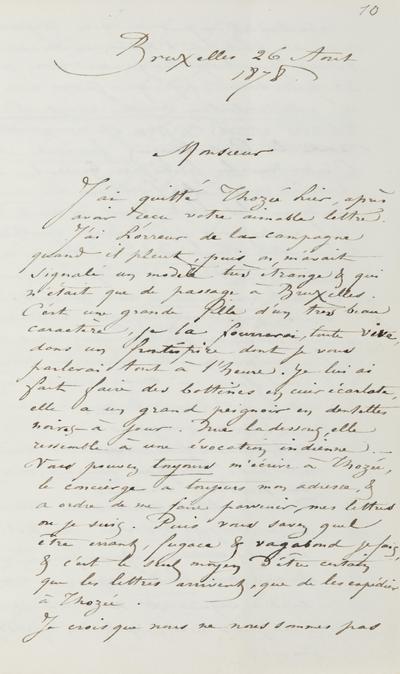 10
Bruxelles 26 Aout
1878.
Monsieur
J'ai quitté Thozée hier, après
avoir reçu votre aimable lettre.
J'ai horreur de la campagne
quand il pleut, puis on m'avait
signalé un modèle très étrange & qui
n'était que de passage à Bruxelles.
C'est une grande fille d'un très beau
caractère, je la fourrerai, toute vive,
dans un frontispice dont je vous
parlerai tout à l'heure. Je lui ai
fait faire des bottines en cuir écarlate,
elle a un grand peignoir en dentelles
noires à jour. Nue là dessous, elle
ressemble à une évocation indienne. —
Vous pouvez toujours m'écrire à Thozée,
le concierge a toujours mon adresse, &
a ordre de me faire parvenir mes lettres
où je suis. Puis vous savez quel
être errant, fugace & vagabond je fais,
& c'est le seul moyen d'être certain
que les lettres arrivent, que de les expédier
à Thozée.
Je crois que nous ne nous sommes pas